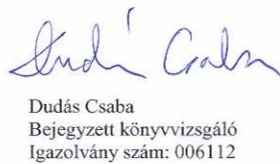 Dudás Csaba
Dudás Csaba
Bejegyzett könyvvizsgáló
Igazolvány szám: 006112